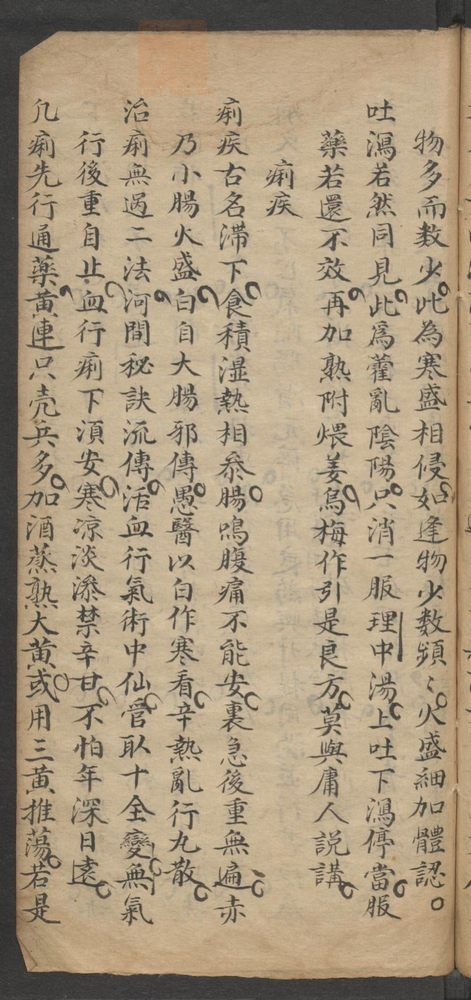 物多而数少。此為寒盛相侵。如逢物少数頻〻。火盛細加體認。
吐瀉若然同見。此為藿亂陰陽。只消一服理中湯。上吐下瀉停當服
藥若還不效。再加熟附煨姜。烏梅作引是良方。莫與庸人説講。
痢疾
痢疾古名滞下。食積湿熱相叅。腸鳴腹痛不能安。裏急後重無遍。赤
乃小腸火盛。白自大腸邪傳。愚醫以白作寒看。辛熱亂行丸散。
治痢無過二法。河間秘訣流傳。活血行氣術中仙。管取十全變無氣
行後重自止。血行痢下湏安。寒凉淡滲禁辛甘。不怕年深日遠。
凡痢先行通藥。黄連只壳兵多。加酒蒸熟大黄。或用三黄推蕩。若是